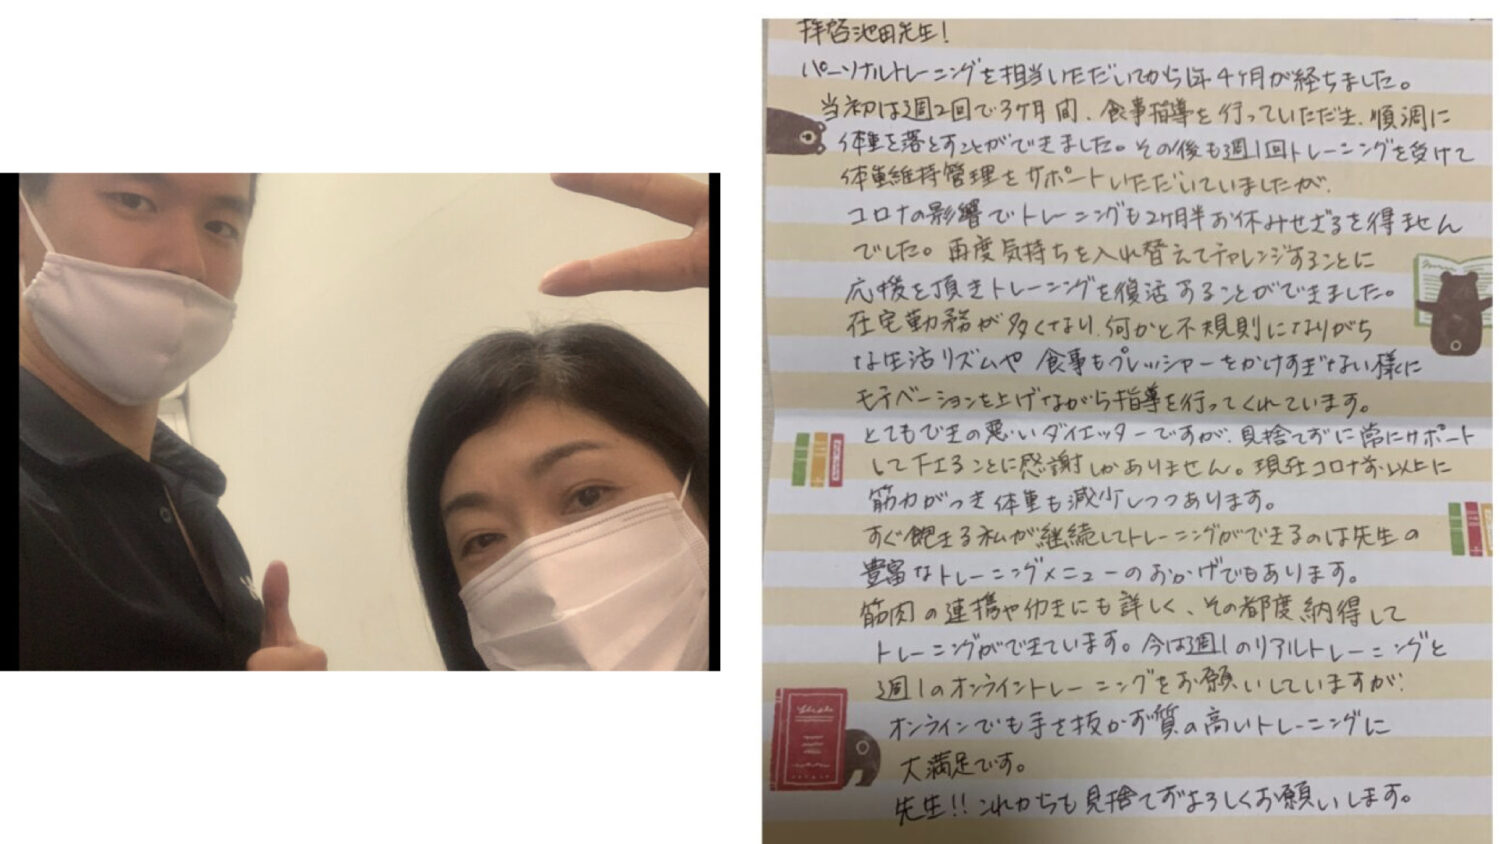 拝啓池田先生!
パーソナルトレーニングを担当いただいてから1年4ヶ月が経ちました。
当初は週2回で3ヶ月間、食事指導を行っていただき、順調に
体重を落とすことができました。その後も週1回トレーニングを受けて
体重維持管理をサポートいただいていましたが、
コロナの影響でトレーニングも2ヶ月半お休みせざるを得ません
でした。再度気持ちを入れ替えてチャレンジすることに
応援を頂きトレーニングを復活することができました。
在宅勤務が多くなり、何かと不規則になりがち
な生活リズムや食事もプレッシャーをかけすぎない様に
モチベーションを上げながら指導を行ってくれています。
とてもできの悪いダイエッターですが、見捨てずに常にサポート
して下さることに感謝しかありません。現在コロナ前以上に
筋力がつき体重も減少しつつあります。
すぐ飽きる私が継続してトレーニングができるのは先生の
豊富なトレーニングメニューのおかげでもあります。
筋肉の連携や動きにも詳しく、その都度納得して
トレーニングができています。今は週1のリアルトレーニングと
週1のオンライントレーニングをお願いしていますが、
オンラインでも手を抜かず質の高いトレーニングに
大満足です。
先生!!これからも見捨てずよろしくお願いします。